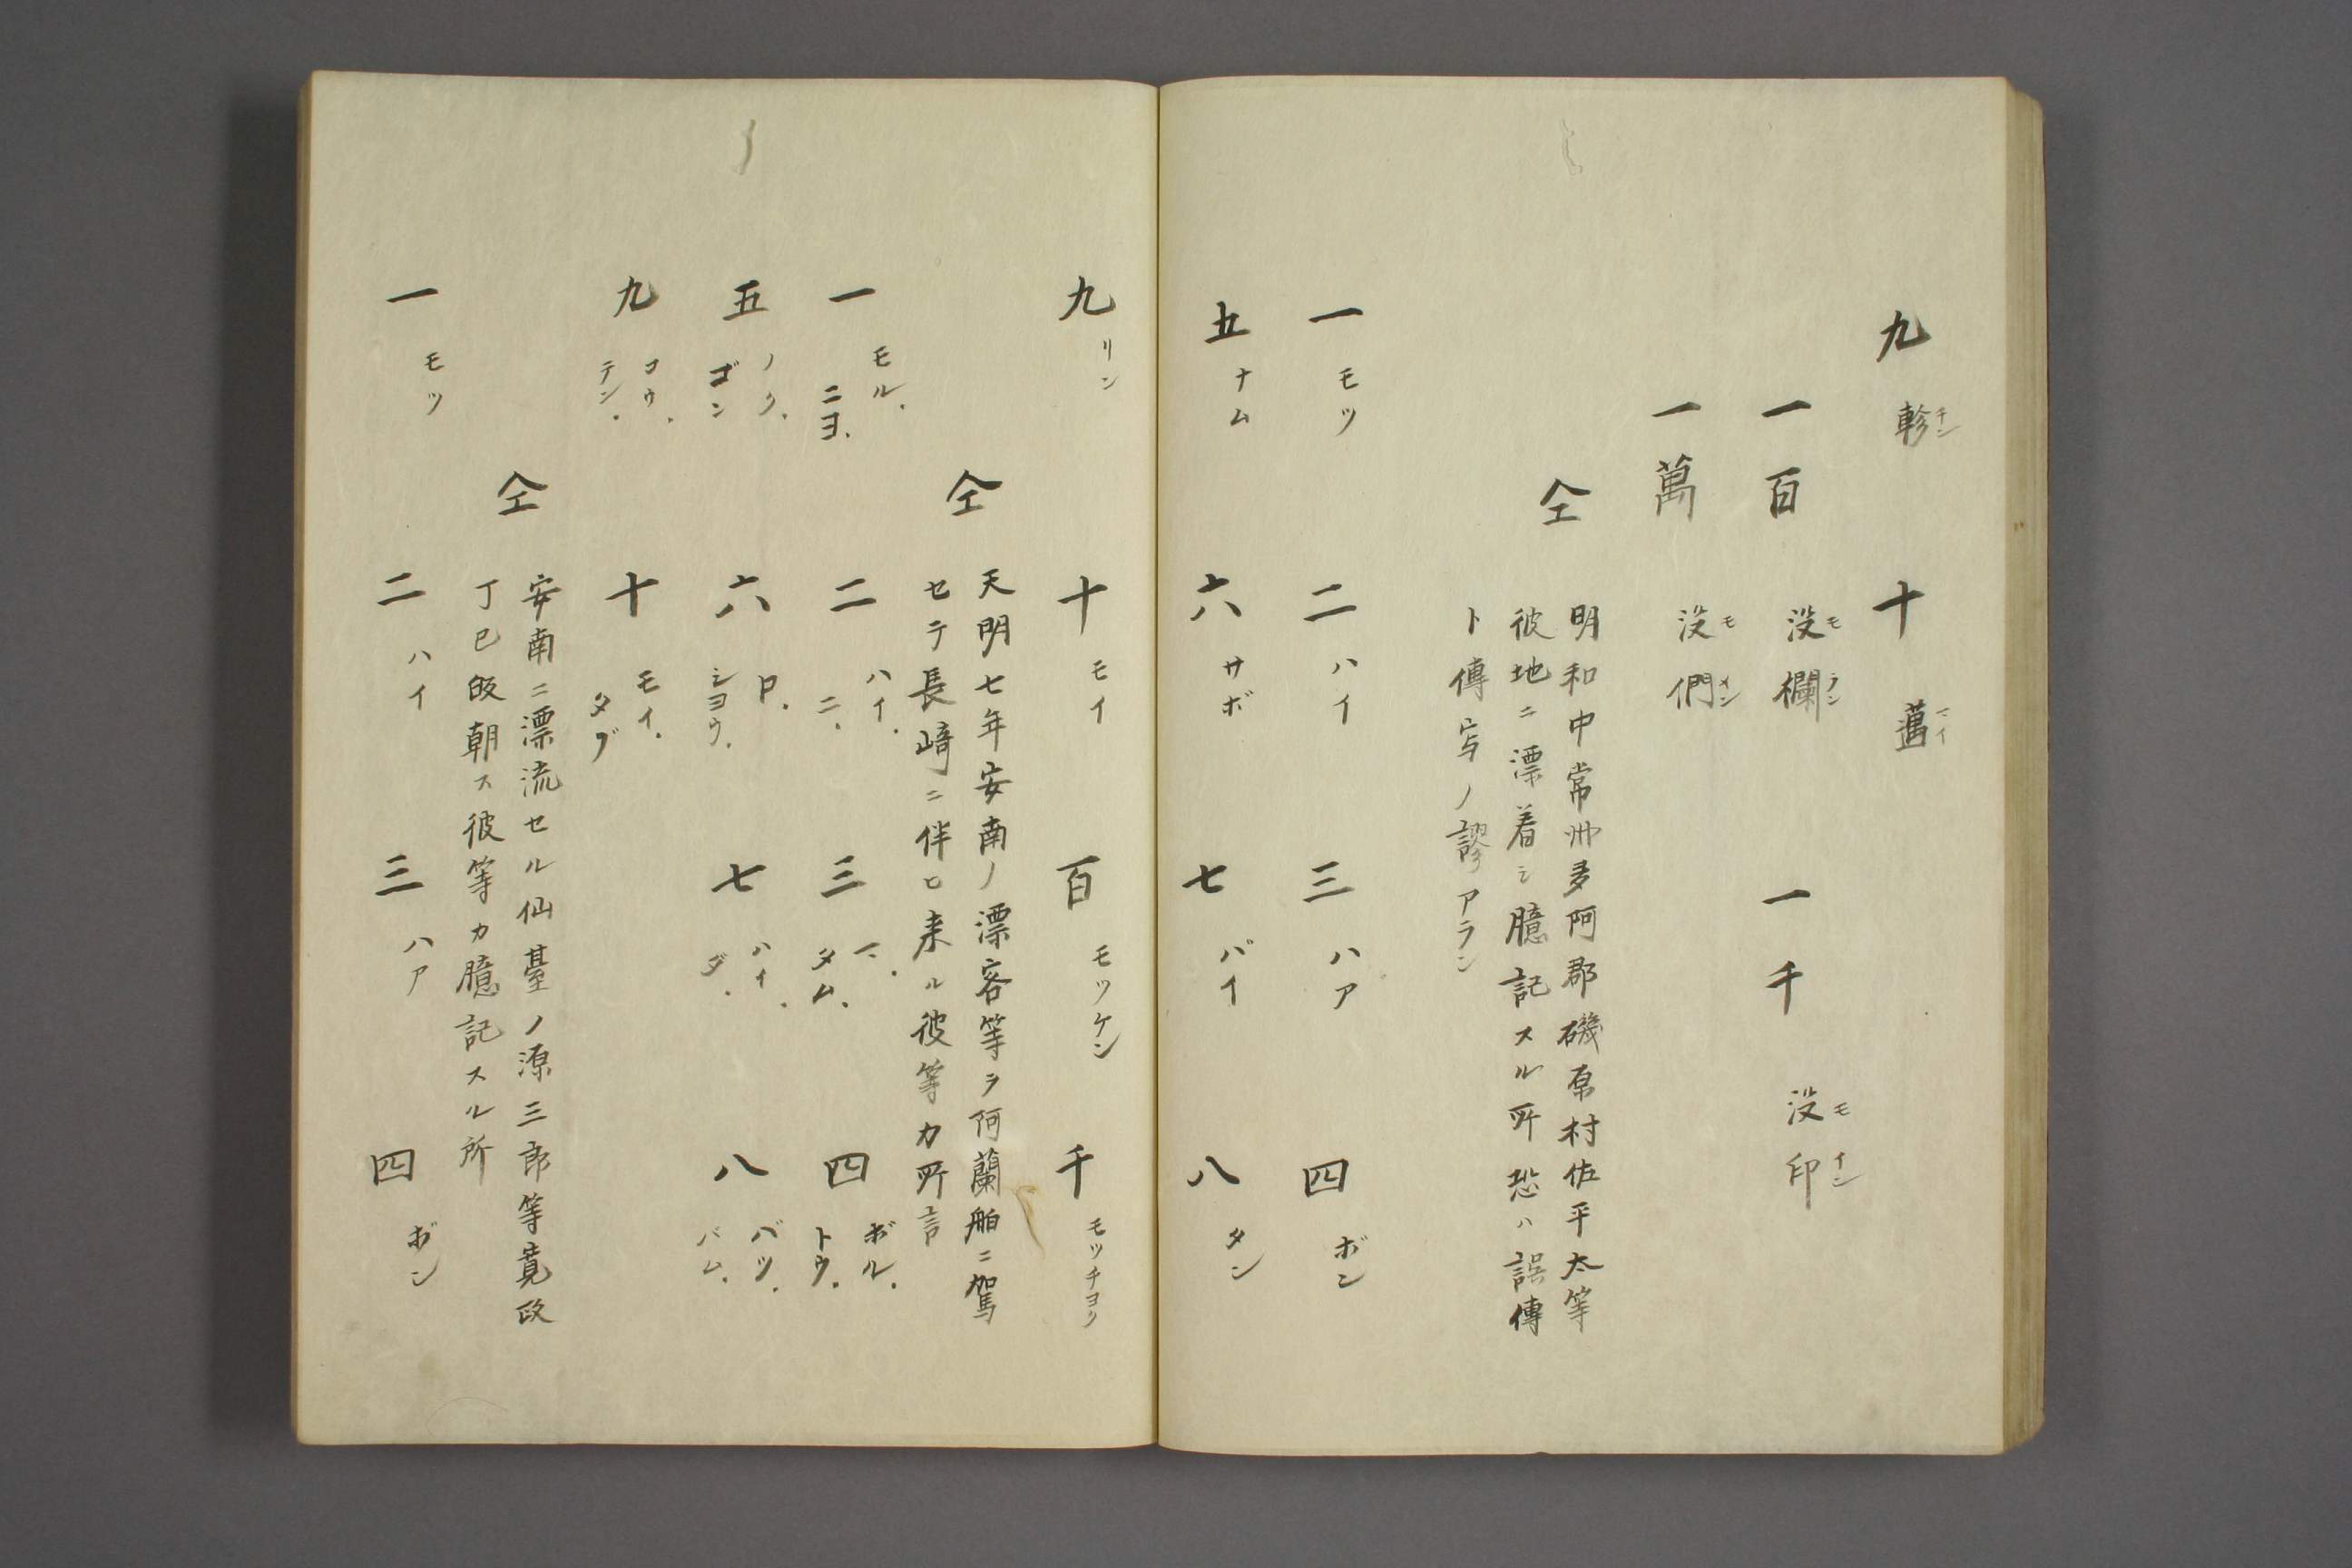 九 軫チン 十 邁マイ
一百 没モ欄ラン 一千 没モ印イン
一萬 没モ們メン
仝 明和中常州多阿郡磯原村佐平太等
彼地ニ漂着シ臆記スル所恐ハ誤傳
ト傳写ノ謬アラン
一 モツ 二 ハイ 三 ハア 四 ボン
五 ナム 六 サボ 七 バイ 八 タン
九 リン 十 モイ 百 モツケン 千 モッチヨク
仝 天明七年安南ノ漂客等ヲ阿蘭舶ニ駕
セテ長崎ニ伴ヒ来ル彼等カ所言
一 モル.ニヨ. 二 ハイ.ニ. 三 マ.タム. 四 ボル.トウ.
五 ノク.ゴン 六 ロ.シヨウ. 七 ハイ.ダ. 八 バツ.バム.
九 コウ.テン. 十 モイ.タブ
仝 安南ニ漂流セル仙臺ノ源三郎等寛政
丁巳皈朝ス彼等カ臆記スル所
一 モツ 二 ハイ 三 ハア 四 ボン